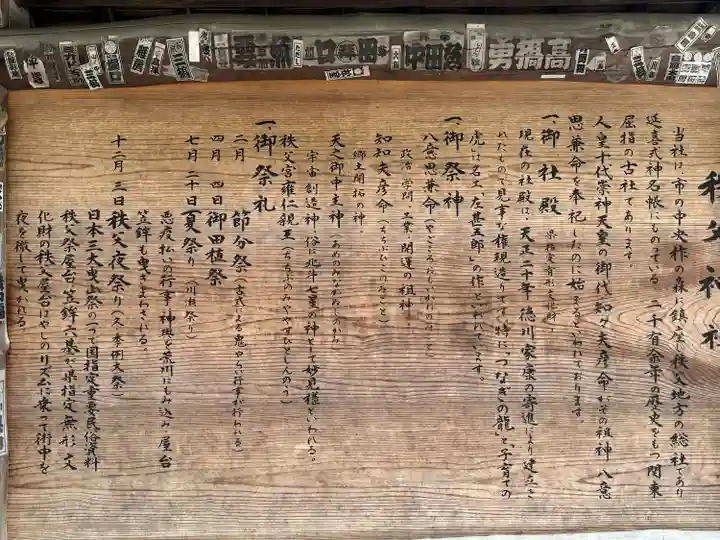 秩父神社
当社は、市の中央柞の森に鎮座し秩父地方の総社であり
延喜式神名帳にものっている 二千百余年の歴史をもつ関東
屈指の古社であります。
人皇十代崇神天皇の御代 知々夫彦命がその祖神 八意
思兼命を奉祀したのに始まるといわれております。
一、御社殿 県指定有形文化財
現在の社殿は、天正二十年徳川家康の寄進により建立さ
れたもので見事な権現造りでで、特に「つなぎの龍」と子育ての
虎は名工「左甚五郎」の作といわれています。
一、御祭神
八意思兼命(やごころおもいかねのみこと)
政治、学問、工業、開運の祖神
知知夫彦命(ちちぶひこのみこと)
郷土開拓の神
天之御中主神(あめのみなかぬしのかみ)
宇宙創造神、俗に北斗七星の神として妙見様といわれる。
秩父宮雍仁親王(ちちぶのみややすひとしんのう)
一、御祭礼
二月 節分祭(古式による鬼やらい行事が行われる)
四月 四日 御田植祭
七月 二十日 夏祭り(川瀬祭り)
悪疫払いの行事、神輿を荒川にもみ込み、屋台
笠鉾も曳きまわされる。
十二月 三日 秩父夜祭り(冬季例大祭)
日本三大曳山祭の一つで国指定重要民俗資料
秩父祭屋台、笠鉾六基が県指定無形文
化財の秩父屋台ばやしのリズムに乗って街中を
夜を徹して曳かれる。
高橋勇